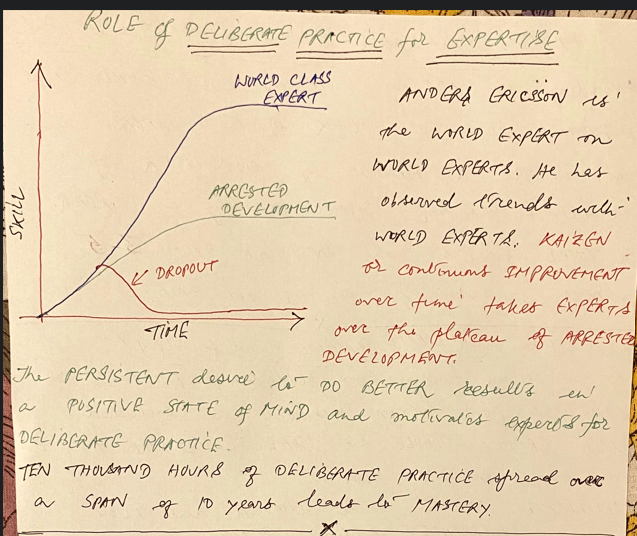 ROLE of DELIBERATE PRACTICE for EXPERTISE
WORLD CLASS
EXPERT
ARRESTED
DEVELOPMENT
DROPOUT
SKILL
TIME
ANDERS ERICSSON is
the WORLD EXPERT on
WORLD EXPERTS. He has
observed trends with
WORLD EXPERTS. KAIZEN
or continuous IMPROVEMENT
over time takes EXPERTS
over the plateau of ARRESTED
DEVELOPMENT.
The PERSISTENT desire to DO BETTER results in
a POSITIVE STATE of MIND and motivates experts for
DELIBERATE PRACTICE.
TEN THOUSAND HOURS of DELIBERATE PRACTICE spread over
a SPAN of 10 years leads to MASTERY.